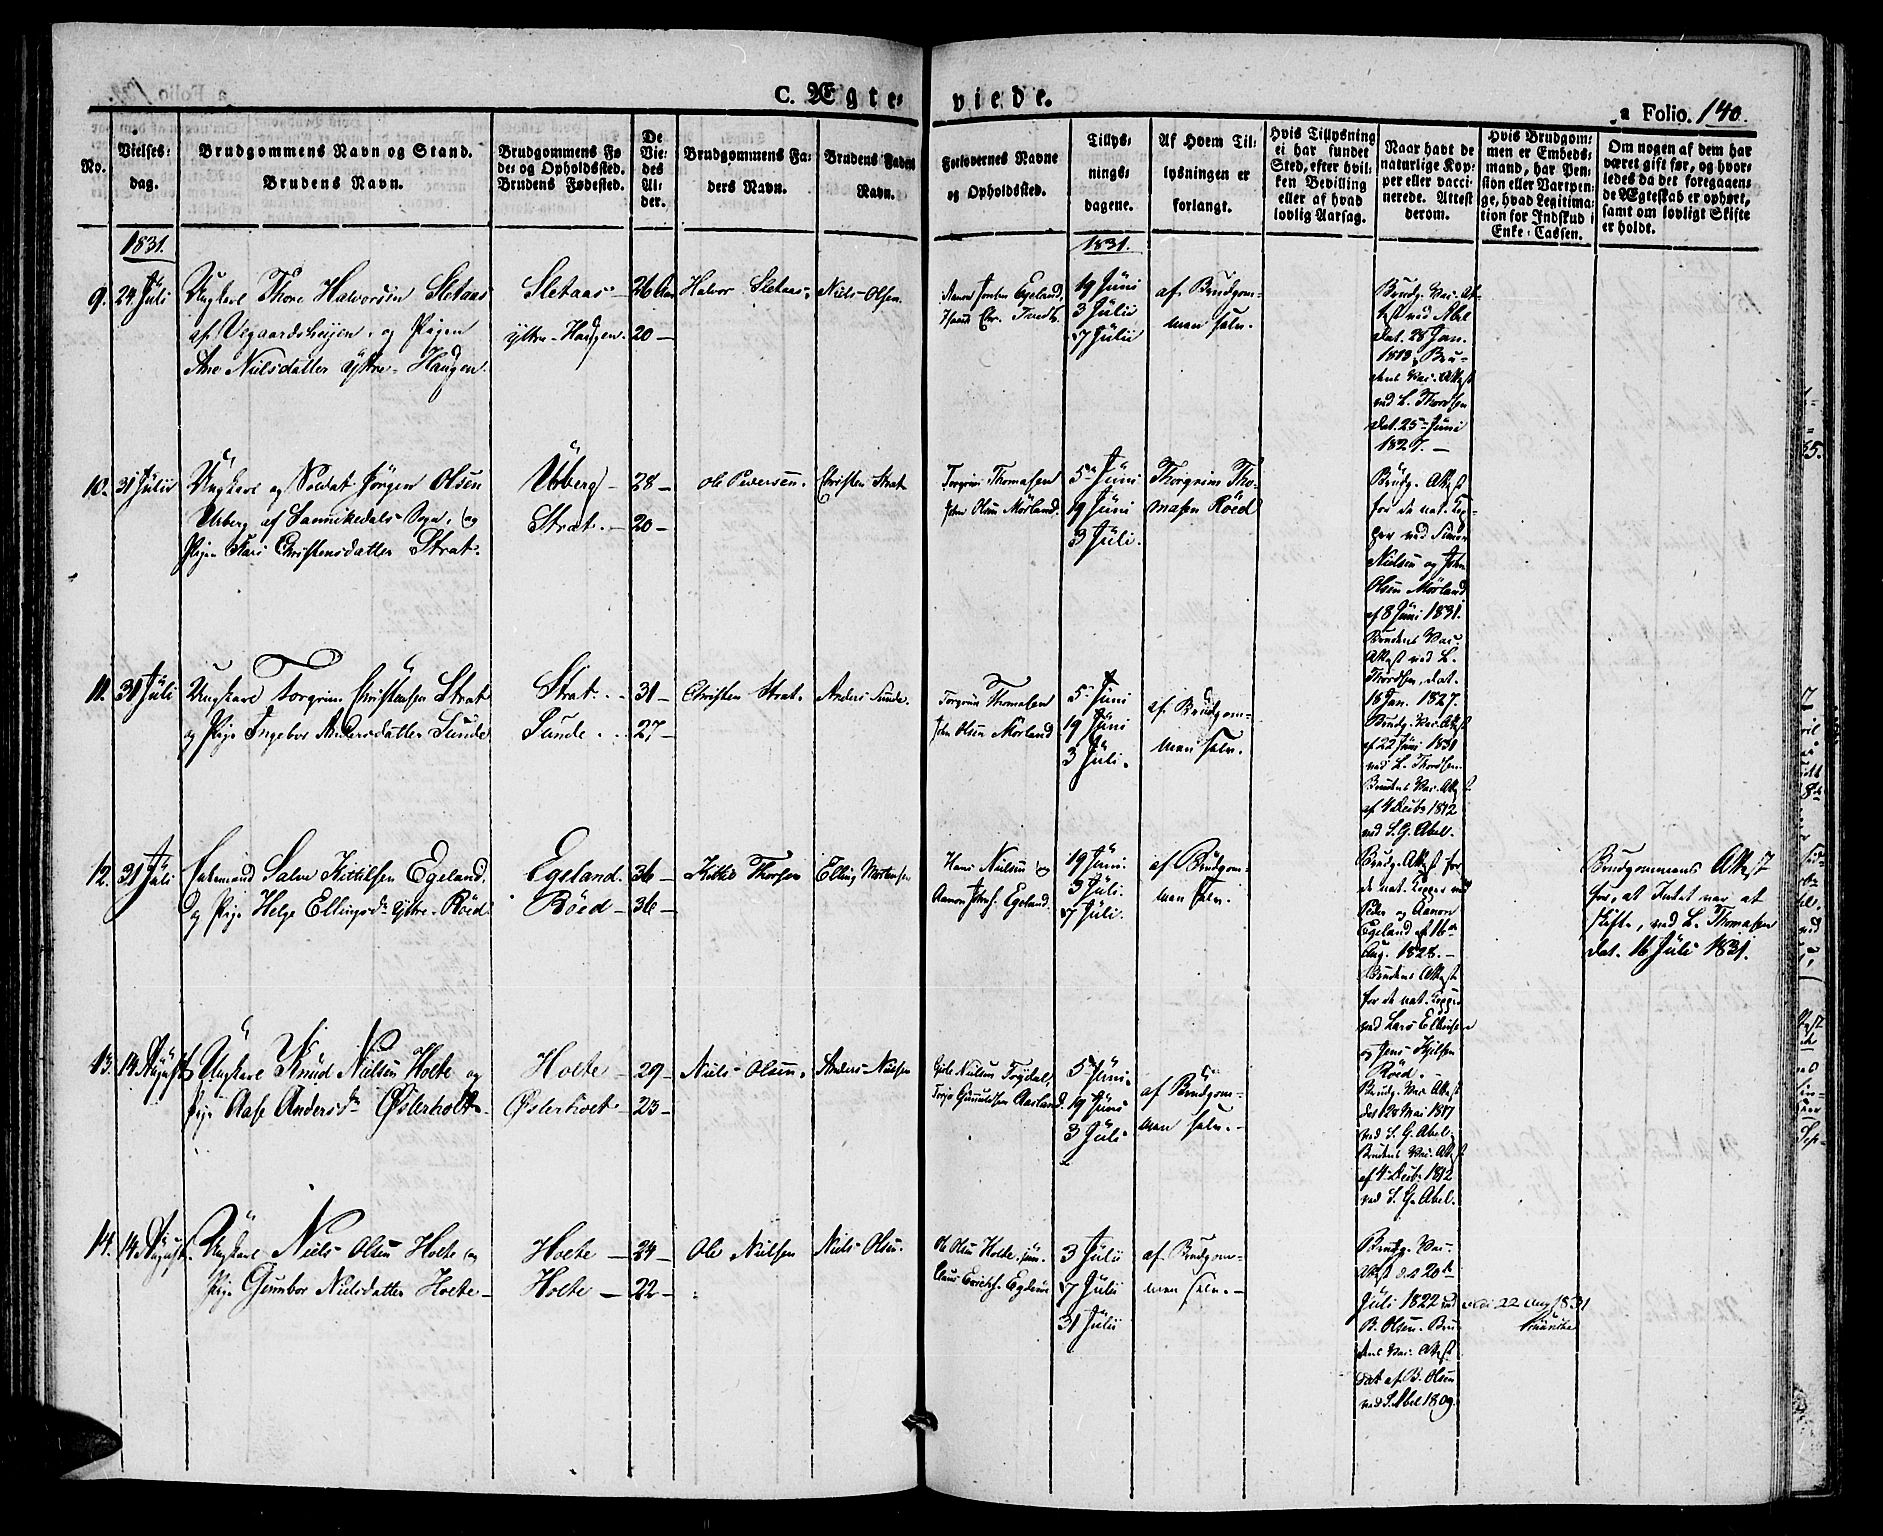 C. Ægte-
viede.
a Folio. 140.
No.
Vielses-
dag.
Brudgommens Navn og Stand.
Brudens Navn.
Brudgommens Fø
de- og Opholdssted.
Brudens Fødested.
De
Vie-
des
Al-
der.
Brudgommens Fa-
ders Navn.
Brudens Faders
Navn.
Forlovernes Navne
og Opholdssted.
Tillys-
nings-
dagene.
Af Hvem Til-
lysningen er
forlangt.
Hvis Tillysning
ei har fundet
Sted, efter hvil-
ken Bevilling
eller af hvad
lovlig Aarsag.
Naar havt de
naturlige Kop-
per eller vacci-
nerede. Attest
derom.
Hvis Brudgom-
men er Embeds-
mand, har Pen-
sion eller Vartpen-
ge, hvad Legitima-
tion for Indskud i
Enke-Cassen.
Om nogen af dem har
været gift før, og hvor-
ledes da det foregaaen-
de Ægteskab er ophørt,
samt om lovligt Skifte
er holdt.
1831.
1831.
9. 24 Juli
Ungkarl Thore Halvorsen Sletaas
af Vegaardsheien, og Pigen
Ane Nielsdatter Yttre-Haugen
Sletaas
Yttre-Haugen.
26 Aar
20
Halvor Sletaas.
Niels Olsen.
Aanon Jonsen Egeland,
19 Juni
3 Julii
17 Julii
af Brudgom-
man selv.
Brudg. Vac. At-
test ved Abel
dat. 28 Jan.
1813, Bru-
dens Vac. Attest
ved L. Thordsen
dat. 25 Juni
1827.
10. 31 Julii
Ungkarl og Soldat Jørgen Olsen
Urberg af Sannikedals Sogn, og
Pigen Kari Christensdatter Strat.
Urberg
Strat.
28
20
Ole Pedersen.
Christen Strat
Torgrim Thomasen
John Olsen Mørland.
5 Juni
19 Juni
3 Juli.
Thorgrim Tho-
masen Röed
Brudg. Attest
for de nat. Kop-
per ved Simon
Nielsen og John
Olsen Mørland
af 8 Juni 1831.
Brudens Vac.
Attest ved L.
Thordsen, dat.
18 Jan. 1827.
11. 31 Juli
Ungkarl Torgrim Christensen Strat
og Pige Ingebor Andersdatter Sunde
Strat.
Sunde.
31
27
Christen Strat.
Anders Sunde.
Torgrim Thomasen
John Olsen Mørland
5 Juni
19 Juni
3 Juli.
af Brudgom-
man selv.
Brudg. Vac. Attest
af 22 Juni 1831
ved L. Thordsen.
Brudens Vac. Attest
af 4 Decbr 1812
ved S. G. Abel.
12. 31 Juli
Enkemand Salve Kittilsen Egeland.
og Pige Helge Ellingsdr Yttre-Röed
Egeland.
Röed
36
36
Kittil Thorsen
Elling Mortensen
Hans Nielsen og
Aanon Johns. Egeland.
19 Juni.
3 Juli.
17 Juli.
af Brudgom-
man selv.
Brudg. Attest for
de nat. Kopper ved
Peder og Aanon
Egeland af 16de
Aug. 1828.
Brudens Attest
for de nat. Kopper
ved Lars Ellingsen
og Jens Kjelsen
Röed.
Brudgommens Attest
for, at Intet var at
skifte, ved L. Thomasen
dat. 16 Juli 1831.
13. 14 August
Ungkarl Knud Nielsen Holte og
Pige Aase Andersdr Østerholt.
Holte
Østerholt
29
23
Niels Olsen.
Anders Nielsen
5 Juni.
19 Juni
3 Juli.
af Brudgom-
man selv.
Brudg. Vac. Attest
des 20 Mai 1817
ved S. G. Abel.
Brudens Vac. Attest
af 4 Decbr 1812
ved S. G. Abel.
14. 14 August.
Ungkarl Niels Olsen Holte og
Pige Gunnbor Nielsdatter Holte
Holte
Holte
24
22
Ole Nielsen
Niels Olsen.
Ole Olsen Holte
3 Julii
17 Julii
31 Julii
af Brudgom-
man selv.
Brudg. Vac.
Attest d. 20de
Juli 1822 ved
B. Olsen. Bru-
dens Vac. Attest
ved S. Abel 1809.
22 Aug 1831